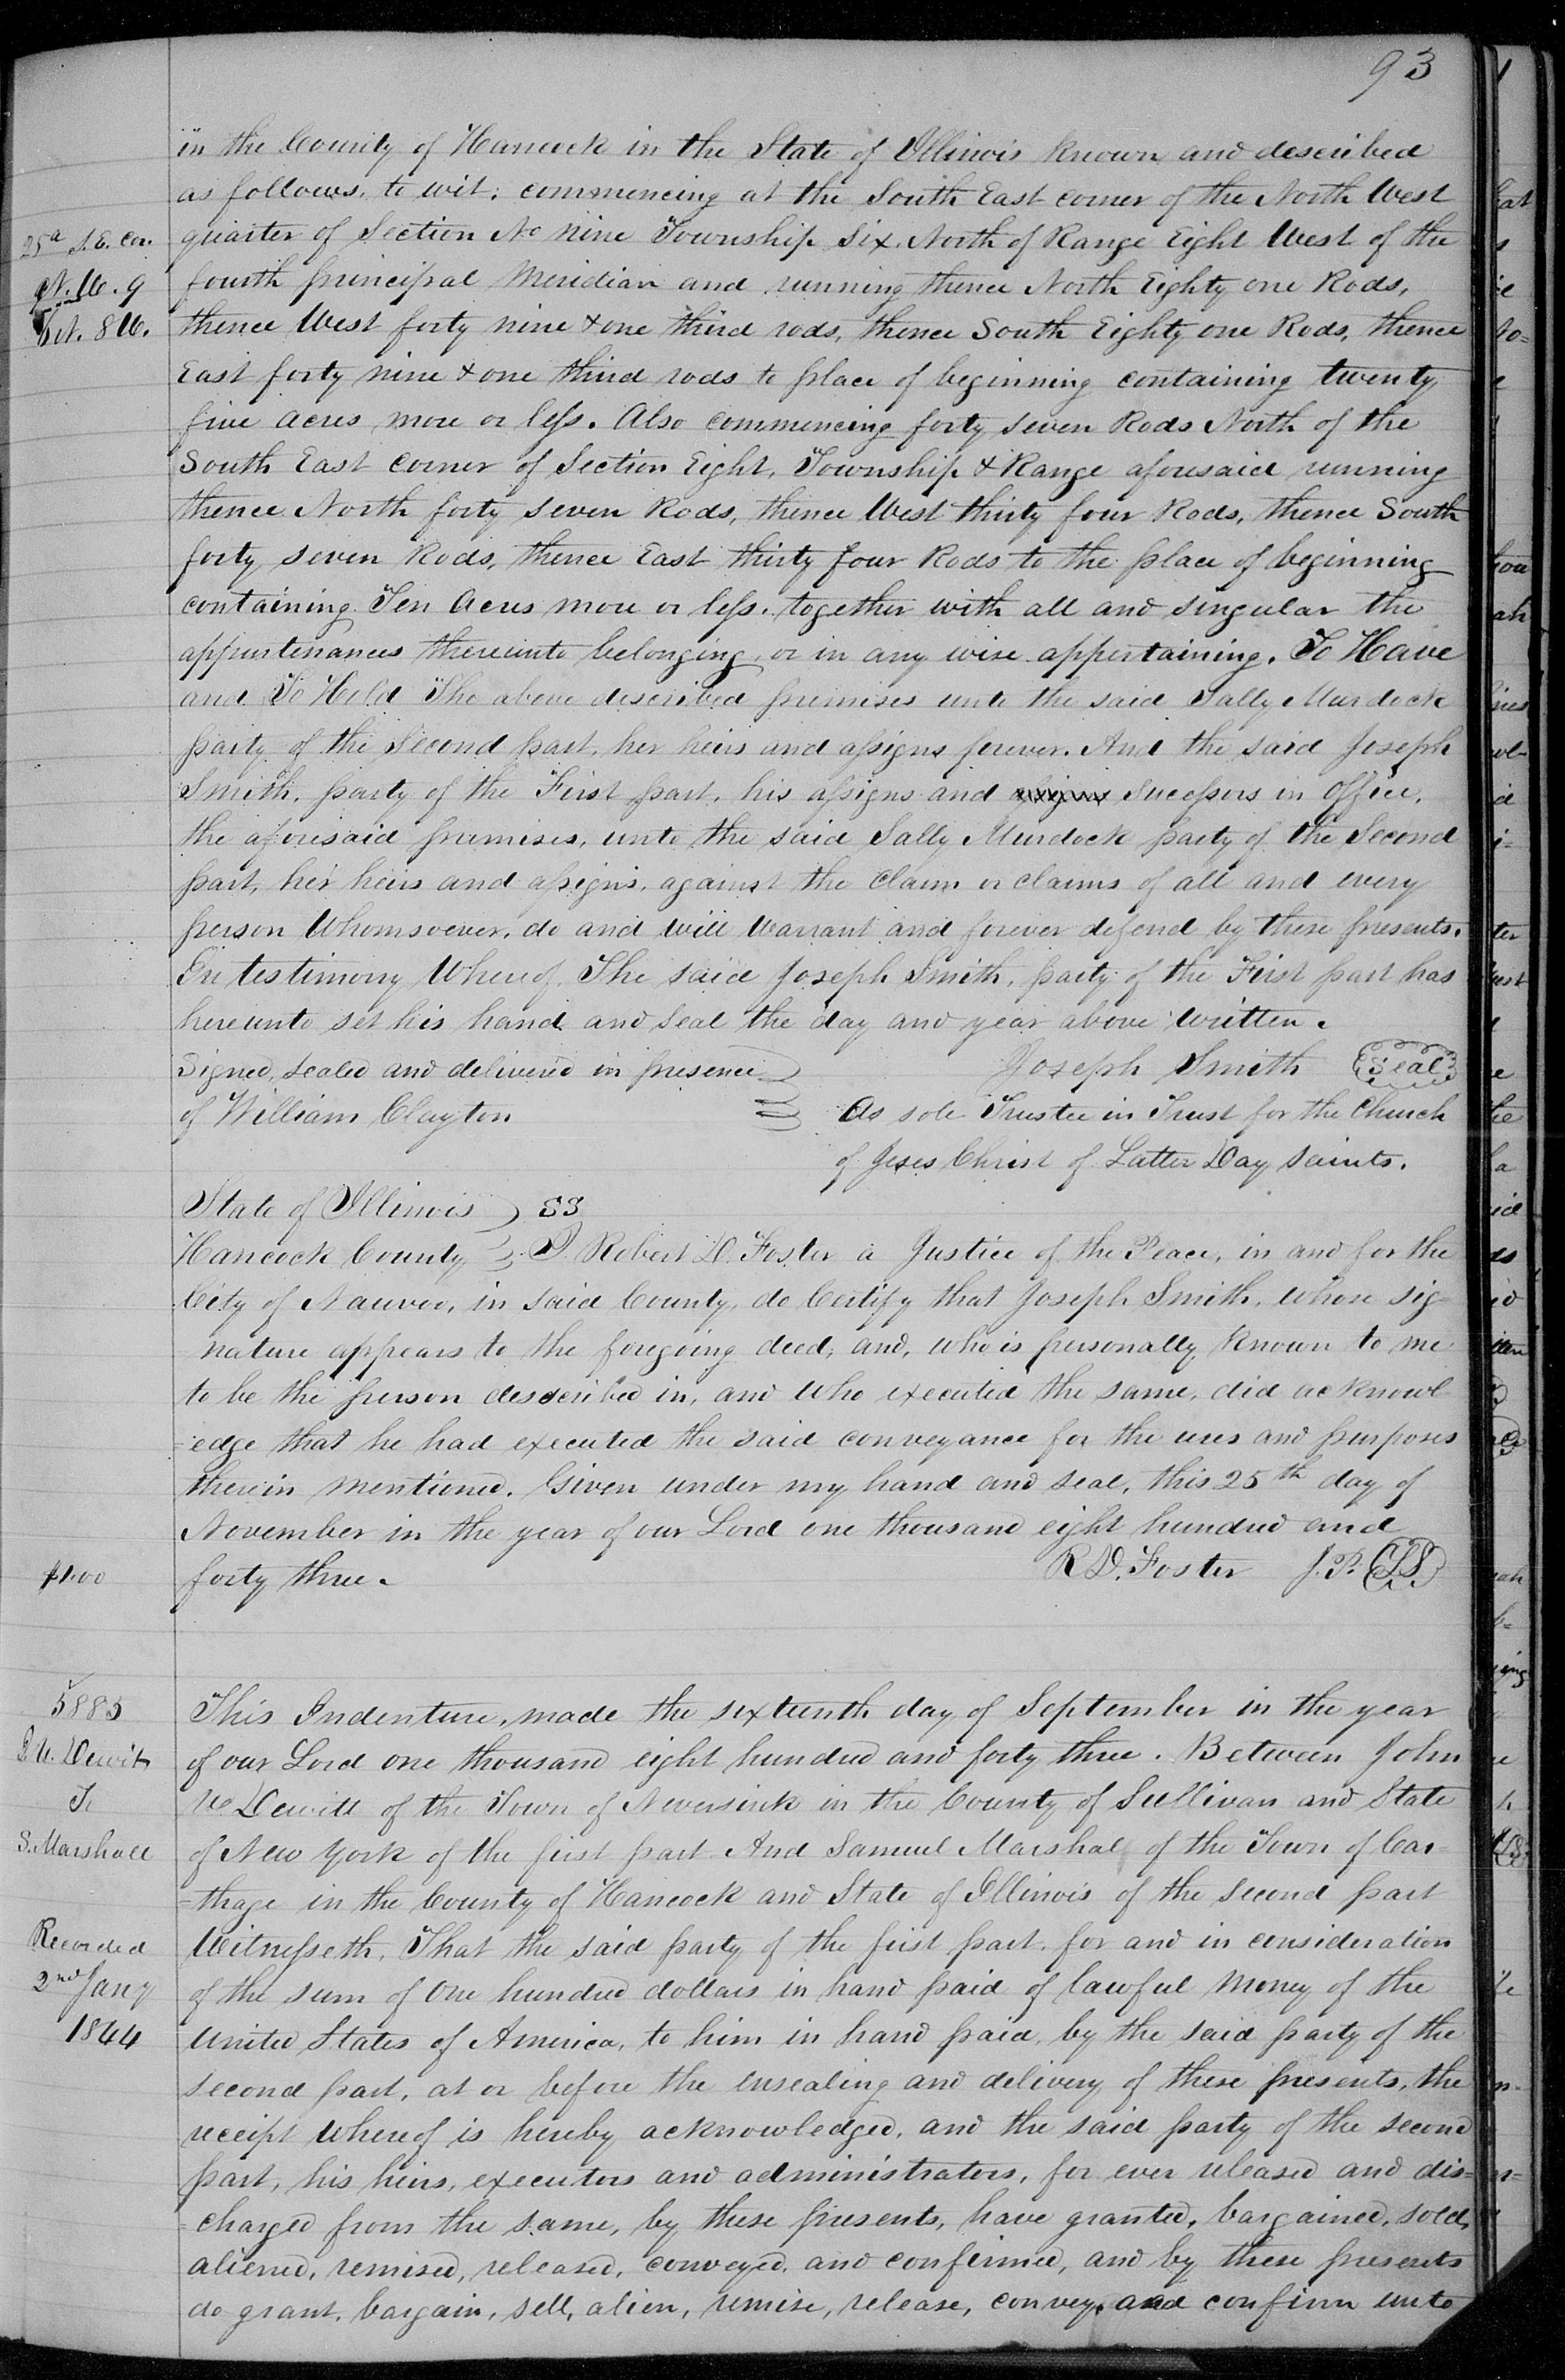 93
in the County of Hancock in the State of Illinois known and described
as follows, to wit: commencing at the South East corner of the North West
25a S.E. Cor. quarter of Section No nine Township Six North of Range Eight West of the
N.W. 9 fourth principal Meridian and running thence North Eighty one Rods,
8W. thence West forty nine & one third rods, thence South Eighty one Rods, thence
East forty nine & one third rods to place of beginning containing twenty
five acres more or less. Also commencing forty seven Rods North of the
South East corner of Section Eight, Township & Range aforesaid running
thence North forty seven Rods, thence West thirty four Rods, thence South
forty seven Rods, thence East thirty four Rods to the place of beginning
containing Ten Acres more or less. together with all and singular the
appurtenances thereunto belonging, or in any wise appertaining. To Have
and To Hold The above described premises unto the said Sally Murdock
party of the Second part, her heirs and assigns forever. And the said Joseph
Smith, party of the First part, his assigns and assigns Successors in Office,
the aforesaid premises, unto the said Sally Murdock party of the Second
part, her heirs and assigns, against the Claim or claims of all and every
person Whomsoever, do and will Warrant and forever defend by these presents.
In testimony Whereof, The said Joseph Smith, party of the First part has
hereunto set his hand and Seal the day and year above written.
Signed, sealed and delivered in presence Joseph Smith Seal
of William Clayton As sole Trustee in Trust for the Church
of Jeses Christ of Latter Day Saints.
State of Illinois SS
Hancock County I Robert D. Foster a Justice of the Peace, in and for the
City of Nauvoo, in said County, do Certify that Joseph Smith, whose sig-
nature appears to the foregoing deed, and, who is personally known to me
to be the person desdcribed in, and who executed the same, did acknowl-
=edge that he had executed the said conveyance for the uses and purposes
therein mentioned. Given under my hand and seal, this 25th day of
November in the year of our Lord one thousand eight hundred and
$1.00 forty three. R D. Foster J.P. LS
5883 This Indenture, made the sixteenth day of September in the year
Dewitt of our Lord one thousand eight hundred and forty three. Between John
To Dewitt of the Town of Neversink in the County of Sullivan and State
S. Marshall of New York of the first part And Samuel Marshal of the Town of Car-
=thage in the County of Hancock and State of Illinois of the second part
Recorded Witnesseth, That the said party of the first part, for and in consideration
2nd Jany of the sum of One hundred dollars in hand paid of lawful money of the
1844 United States of America, to him in hand paid, by the said party of the
second part, at or before the ensealing and delivery of these presents, the
receipt whereof is hereby acknowledged, and the said party of the second
part, his heirs, executors and administrators, for ever released and dis=
=charged from the same, by these presents, have granted, bargained, sold,
aliened, remised, released, conveyed, and confirmed, and by these presents
do grant, bargain, sell, alien, remise, release, convey, and confirm unto